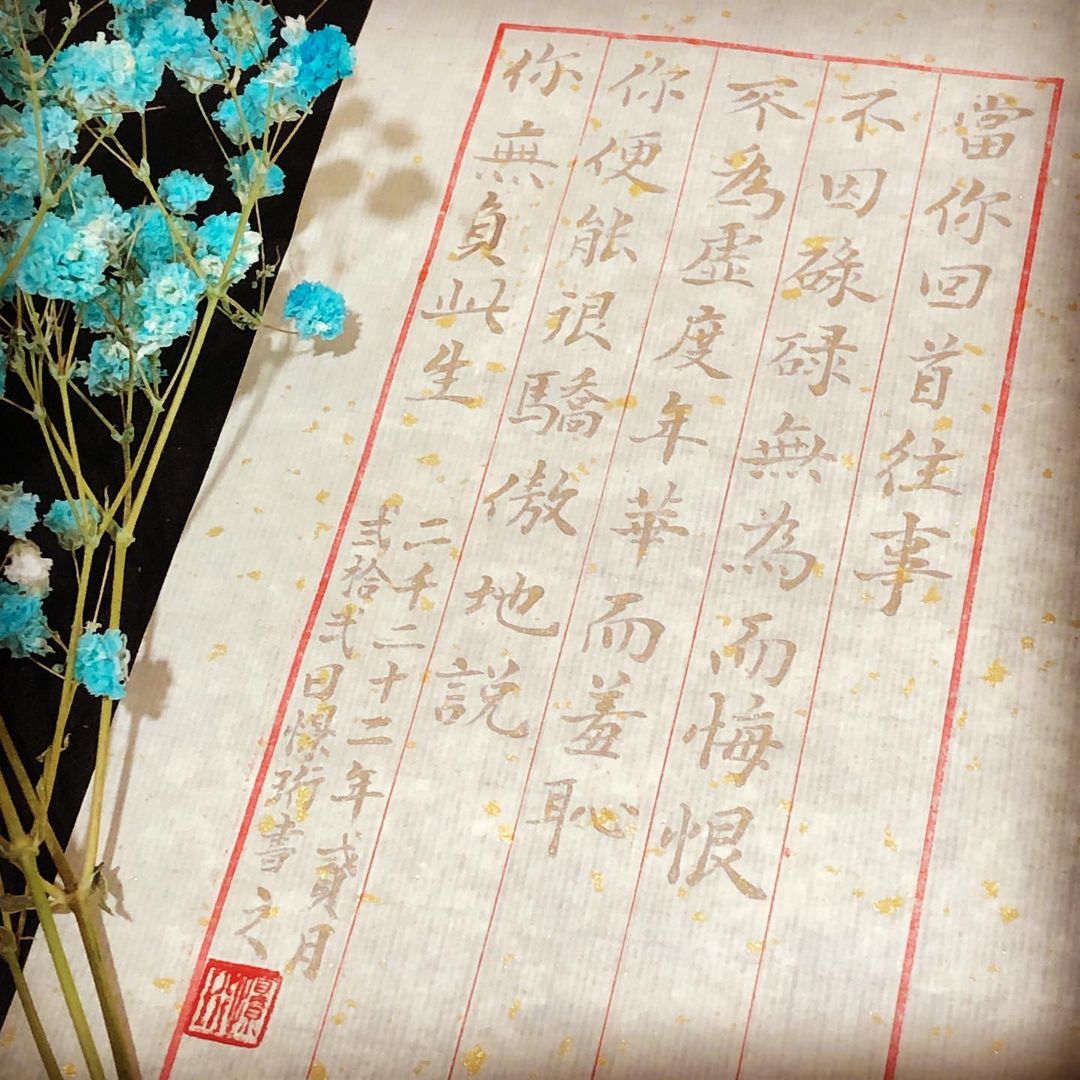 當你回首往事
不因碌碌無為而悔恨
不為虛度年華而羞恥
你便能很驕傲地説
你無負此生
二千二十二年貳月
弍拾弍日珩書之